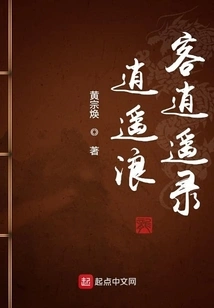 客逍遥录
逍遥浪
黄宗焕 ◎ 著
起点中文网